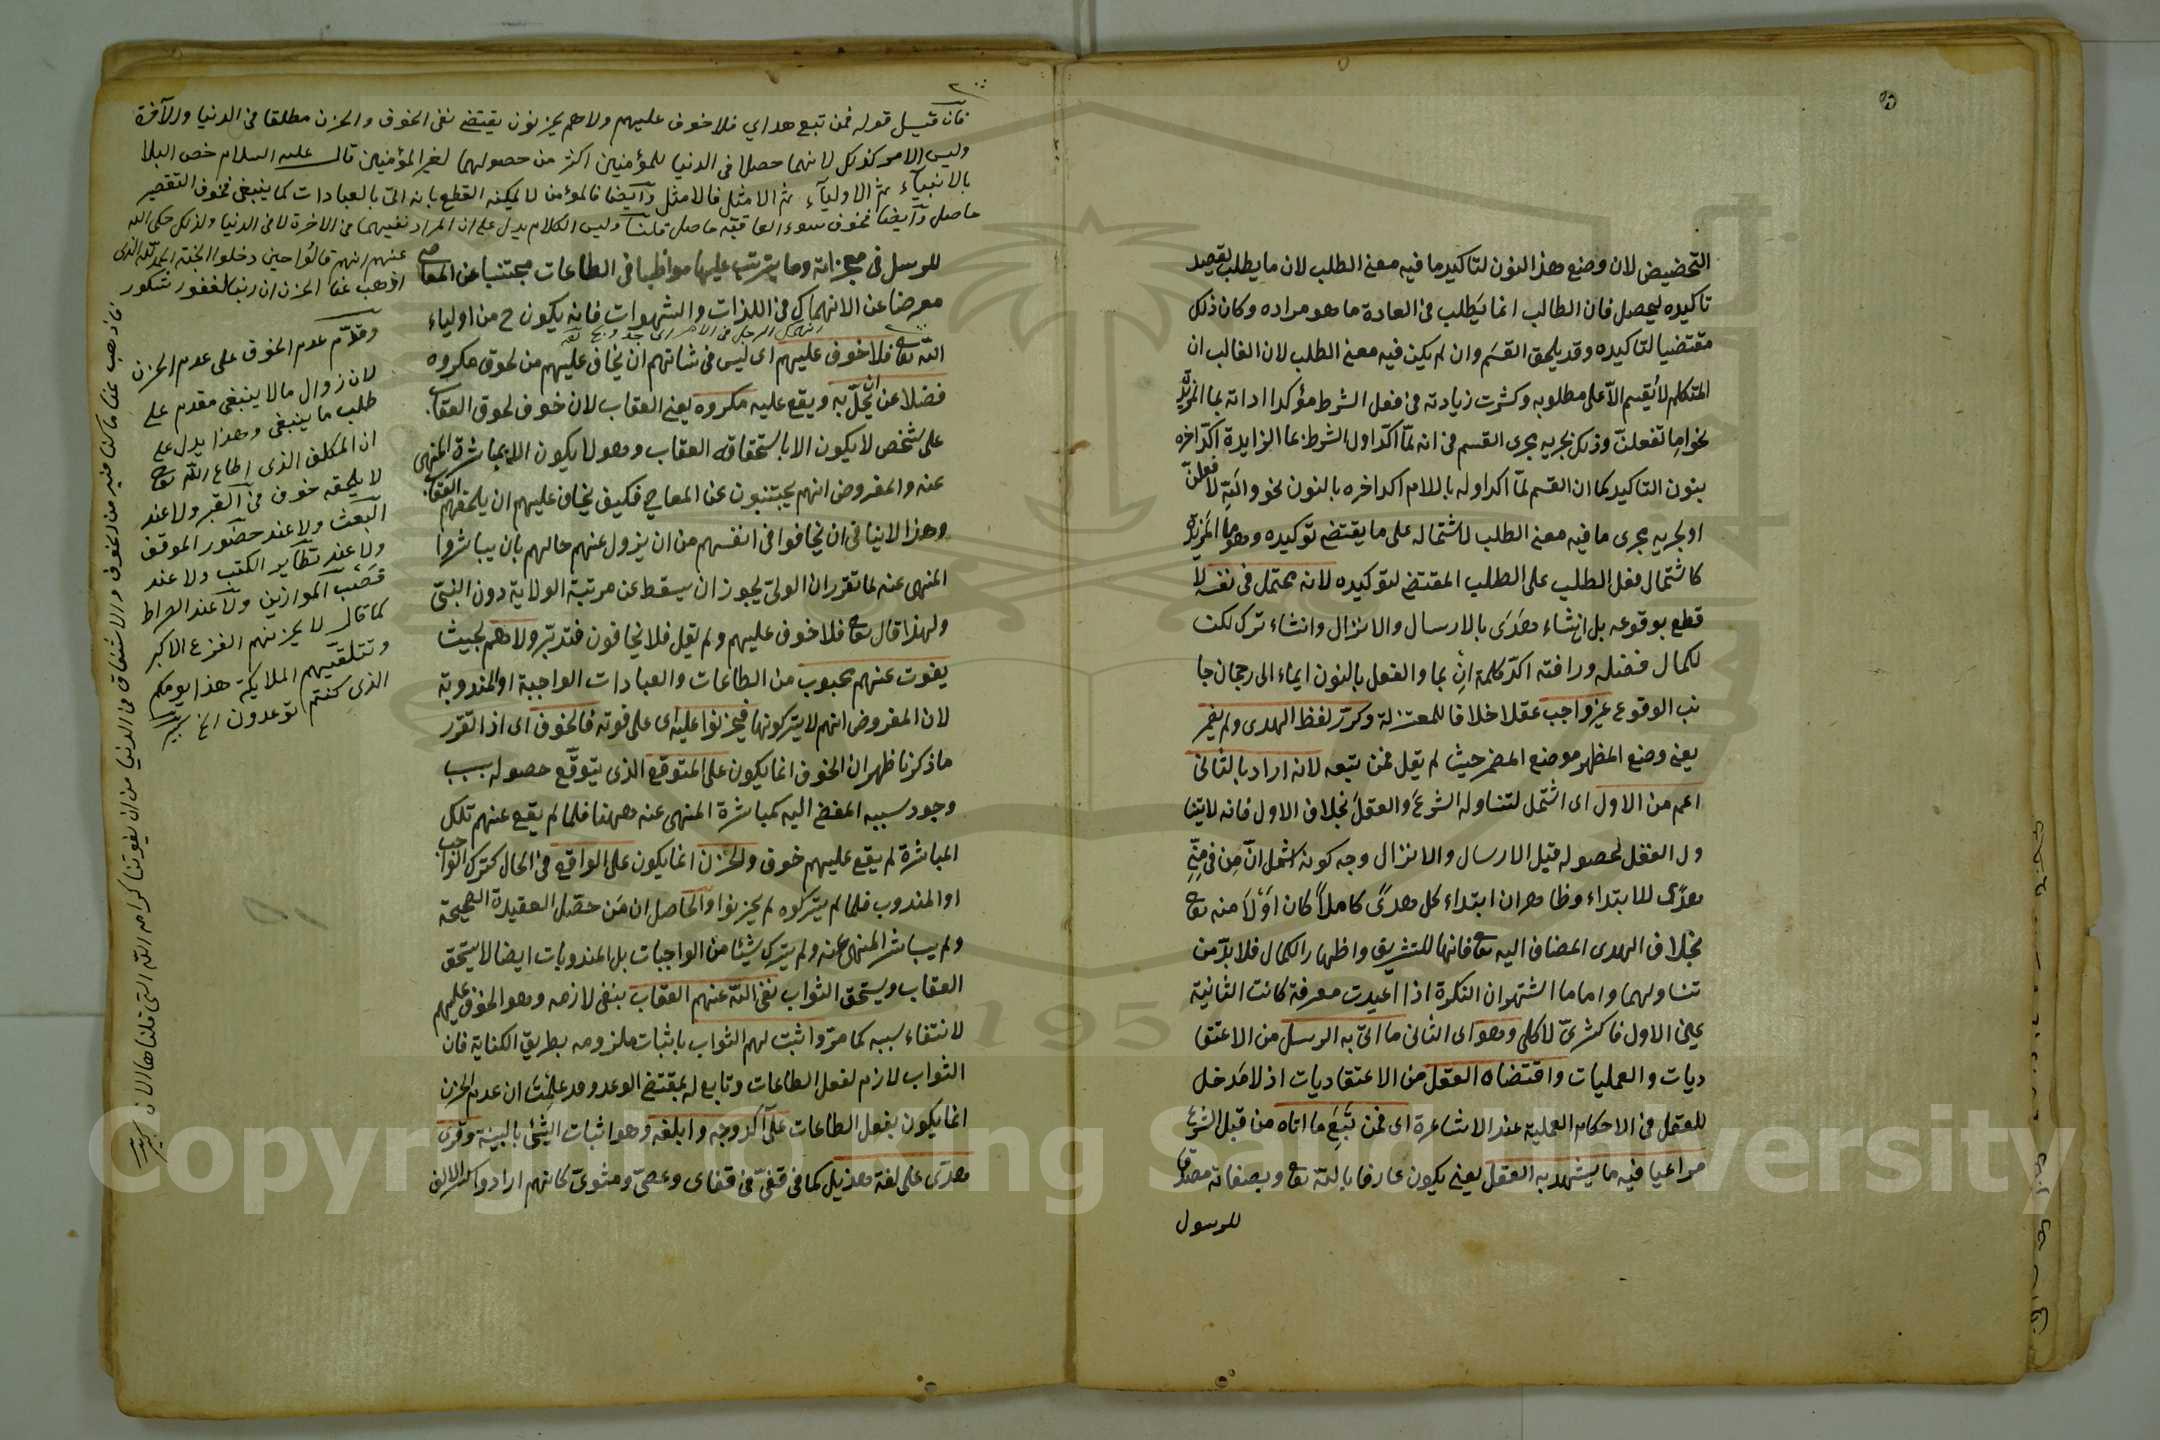 التحضيض لان وضع هذا النون لتاكيد ما فيه معنى الطلب لان ما يطلب يقصد
تاكيده ليحصل فان الطالب انما يطلب فى العادة ما هو مراده وكان ذلك
مقتضيا لتاكيده وقد يلحق القسم وان لم يكن فيه معنى الطلب لان الغالب ان
المتكلم لا يقسم الا على مطلوبه وكثرت زيادته فى فعل الشرط مؤكدا اداته بما المزيدة
نحو اما تفعلن وذلك بجريه مجرى القسم فى انه لما اكد اول الشرط بما الزايدة اكد اخره
بنون التاكيد كما ان القسم لما اكد اوله باللام اكد اخره بالنون نحو والله لافعلن
او بجريه مجرى ما فيه معنى الطلب لاشتماله على ما يقتضى توكيده وهو ما المزيدة
كاشتمال فعل الطلب على الطلب المقتضى لتوكيده لانه محتمل فى نفسه لا
قطع بوقوعه بل ان شاء هدى بالارسال والانزال وان شاء ترك لكن
لكمال فضله ورافته اكد كلمة ان بما والفعل بالنون ايماء الى رجحان جا
نب الوقوع غير واجب عقلا خلافا للمعتزلة وكرر لفظ الهدى ولم يضمر
يعنى وضع المظهر موضع المضمر حيث لم يقل فمن تبعه لانه اراد بالثانى
اعم من الاول اى اشمل لتناوله الشرع والعقل بخلاف الاول فانه لا يتنا
ول العقل لحصوله قبل الارسال والانزال وجه كونه اشمل ان من فى منى
هدى للابتداء وظاهر ان ابتداء كل هدى كاملا كان او لا منه تعالى
بخلاف الهدى المضاف اليه تعالى فانها للتشريف واظهار الكمال فلا بد من
تناولهما واما ما اشتهر ان النكرة اذا اعيدت معرفة كانت الثانية
عين الاول فاكثرى لا كلى وهو اى الثانى ما اتى به الرسل من الاعتقا
ديات والعمليات واقتضاه العقل من الاعتقاديات اذ لا مدخل
للعقل فى الاحكام العملية عند الاشاعرة اى فمن تبع ما اتاه من قبل الشرع
مراعيا فيه ما يشهد به العقل يعنى يكون عارفا بالله تعالى وبصفاته مصدقا
للرسول
فان قيل قوله فمن تبع هداي فلا خوف عليهم ولا هم يحزنون يقتضى نفى الخوف والحزن مطلقا فى الدنيا والآخرة
وليس الامر كذلك لانهما حصلا فى الدنيا للمؤمنين اكثر من حصولهما لغير المؤمنين قال عليه السلام خص البلا
بالانبيآء ثم الاوليآء ثم الامثل فالامثل وايضا فالمؤمن لا يمكنه القطع بانه اتى بالعبادات كما ينبغى فخوف التقصير
حاصل وايضا فخوف سوء العاقبة حاصل قلنا وليس الكلام يدل على ان المراد نفيهما فى الاخرة لا فى الدنيا ولذلك حكى الله
عنهم انهم قالوا حين دخلوا الجنة الحمد لله الذى
اذهب عنا الحزن ان ربنا لغفور شكور
للرسل فى معجزاته وما يترتب عليها مواظبا فى الطاعات مجتنبا عن المعاصى
معرضا عن الانهماك فى اللذات والشهوات فانه يكون ح من اولياء
انهمك الرجل فى الامر اى جد ولج
الله تعالى فلا خوف عليهم اى ليس فى شانهم ان يخاف عليهم من لحوق مكروه
فضلا عن ان يحل به ويقع عليه مكروه يعنى العقاب لان خوف لحوق العقاب
على شخص لا يكون الا باستحقاقه العقاب وهو لا يكون الا بمباشرة المنهى
عنه والمفروض انهم يجتنبون عن المعاصى فكيف يخاف عليهم ان يلحقهم العقاب
وهذا لا ينافى ان يخافوا فى انفسهم من ان يزول عنهم حالهم بان يباشروا
المنهى عنه لما تقرر ان الولى يجوز ان يسقط عن مرتبة الولاية دون النبى
ولهذا قال تعالى فلا خوف عليهم ولم يقل فلا يخافون فتدبر ولا هم بحيث
يفوت عنهم محبوب من الطاعات والعبادات الواجبة او المندوبة
لان المفروض انهم لا يتركونها فيحزنوا عليه اى على فوته فالخوف اى اذا تقرر
ما ذكرنا ظهر ان الخوف انما يكون على المتوقع الذى يتوقع حصوله بسبب
وجود سببه المفضى اليه كمباشرة المنهى عنه وههنا فلما لم يقع عنهم تلك
المباشرة لم يقع عليهم خوف والحزن انما يكون على الواقع فى الحال كترك الواجب
او المندوب فلما لم يتركوه لم يحزنوا والحاصل ان من حصل العقيدة الصحيحة
ولم يباشر المنهى عنه ولم يترك شيئا من الواجبات بل المندوبات ايضا لا يستحق
العقاب ويستحق الثواب نفى الله عنهم العقاب بنفى لازمه وهو الخوف عليهم
لانتفاء سببه كما مر واثبت لهم الثواب باثبات ملزومه بطريق الكناية فان
الثواب لازم لفعل الطاعات وتابع له بمقتضى الوعد وقد علمت ان عدم الحزن
انما يكون بفعل الطاعات على آكد وجه وابلغه وهو اثبات الشئ بالبينة وقرئ
هدى على لغة هذيل كما فى قفى فى قفاى وعصى ومثوى كانهم ارادوا كسر الالف
وقدم عدم الخوف على عدم الحزن
لان زوال ما لا ينبغى مقدم على
طلب ما ينبغى وهذا يدل على
ان المكلف الذى اطاع الله تعالى
لا يلحقه خوف فى القبر ولا عند
البعث ولا عند حضور الموقف
ولا عند تطاير الكتب ولا عند
نصب الموازين ولا عند الصراط
كما قال لا يحزنهم الفزع الاكبر
وتتلقيهم الملايكة هذا يومكم
الذى كنتم توعدون الخ
فاذهب عنا ما كنا فيه من الخوف والاشفاق فى الدنيا من ان يفوتنا كرامة الله التى نلناها الان
Copyright © King Saud University
1957